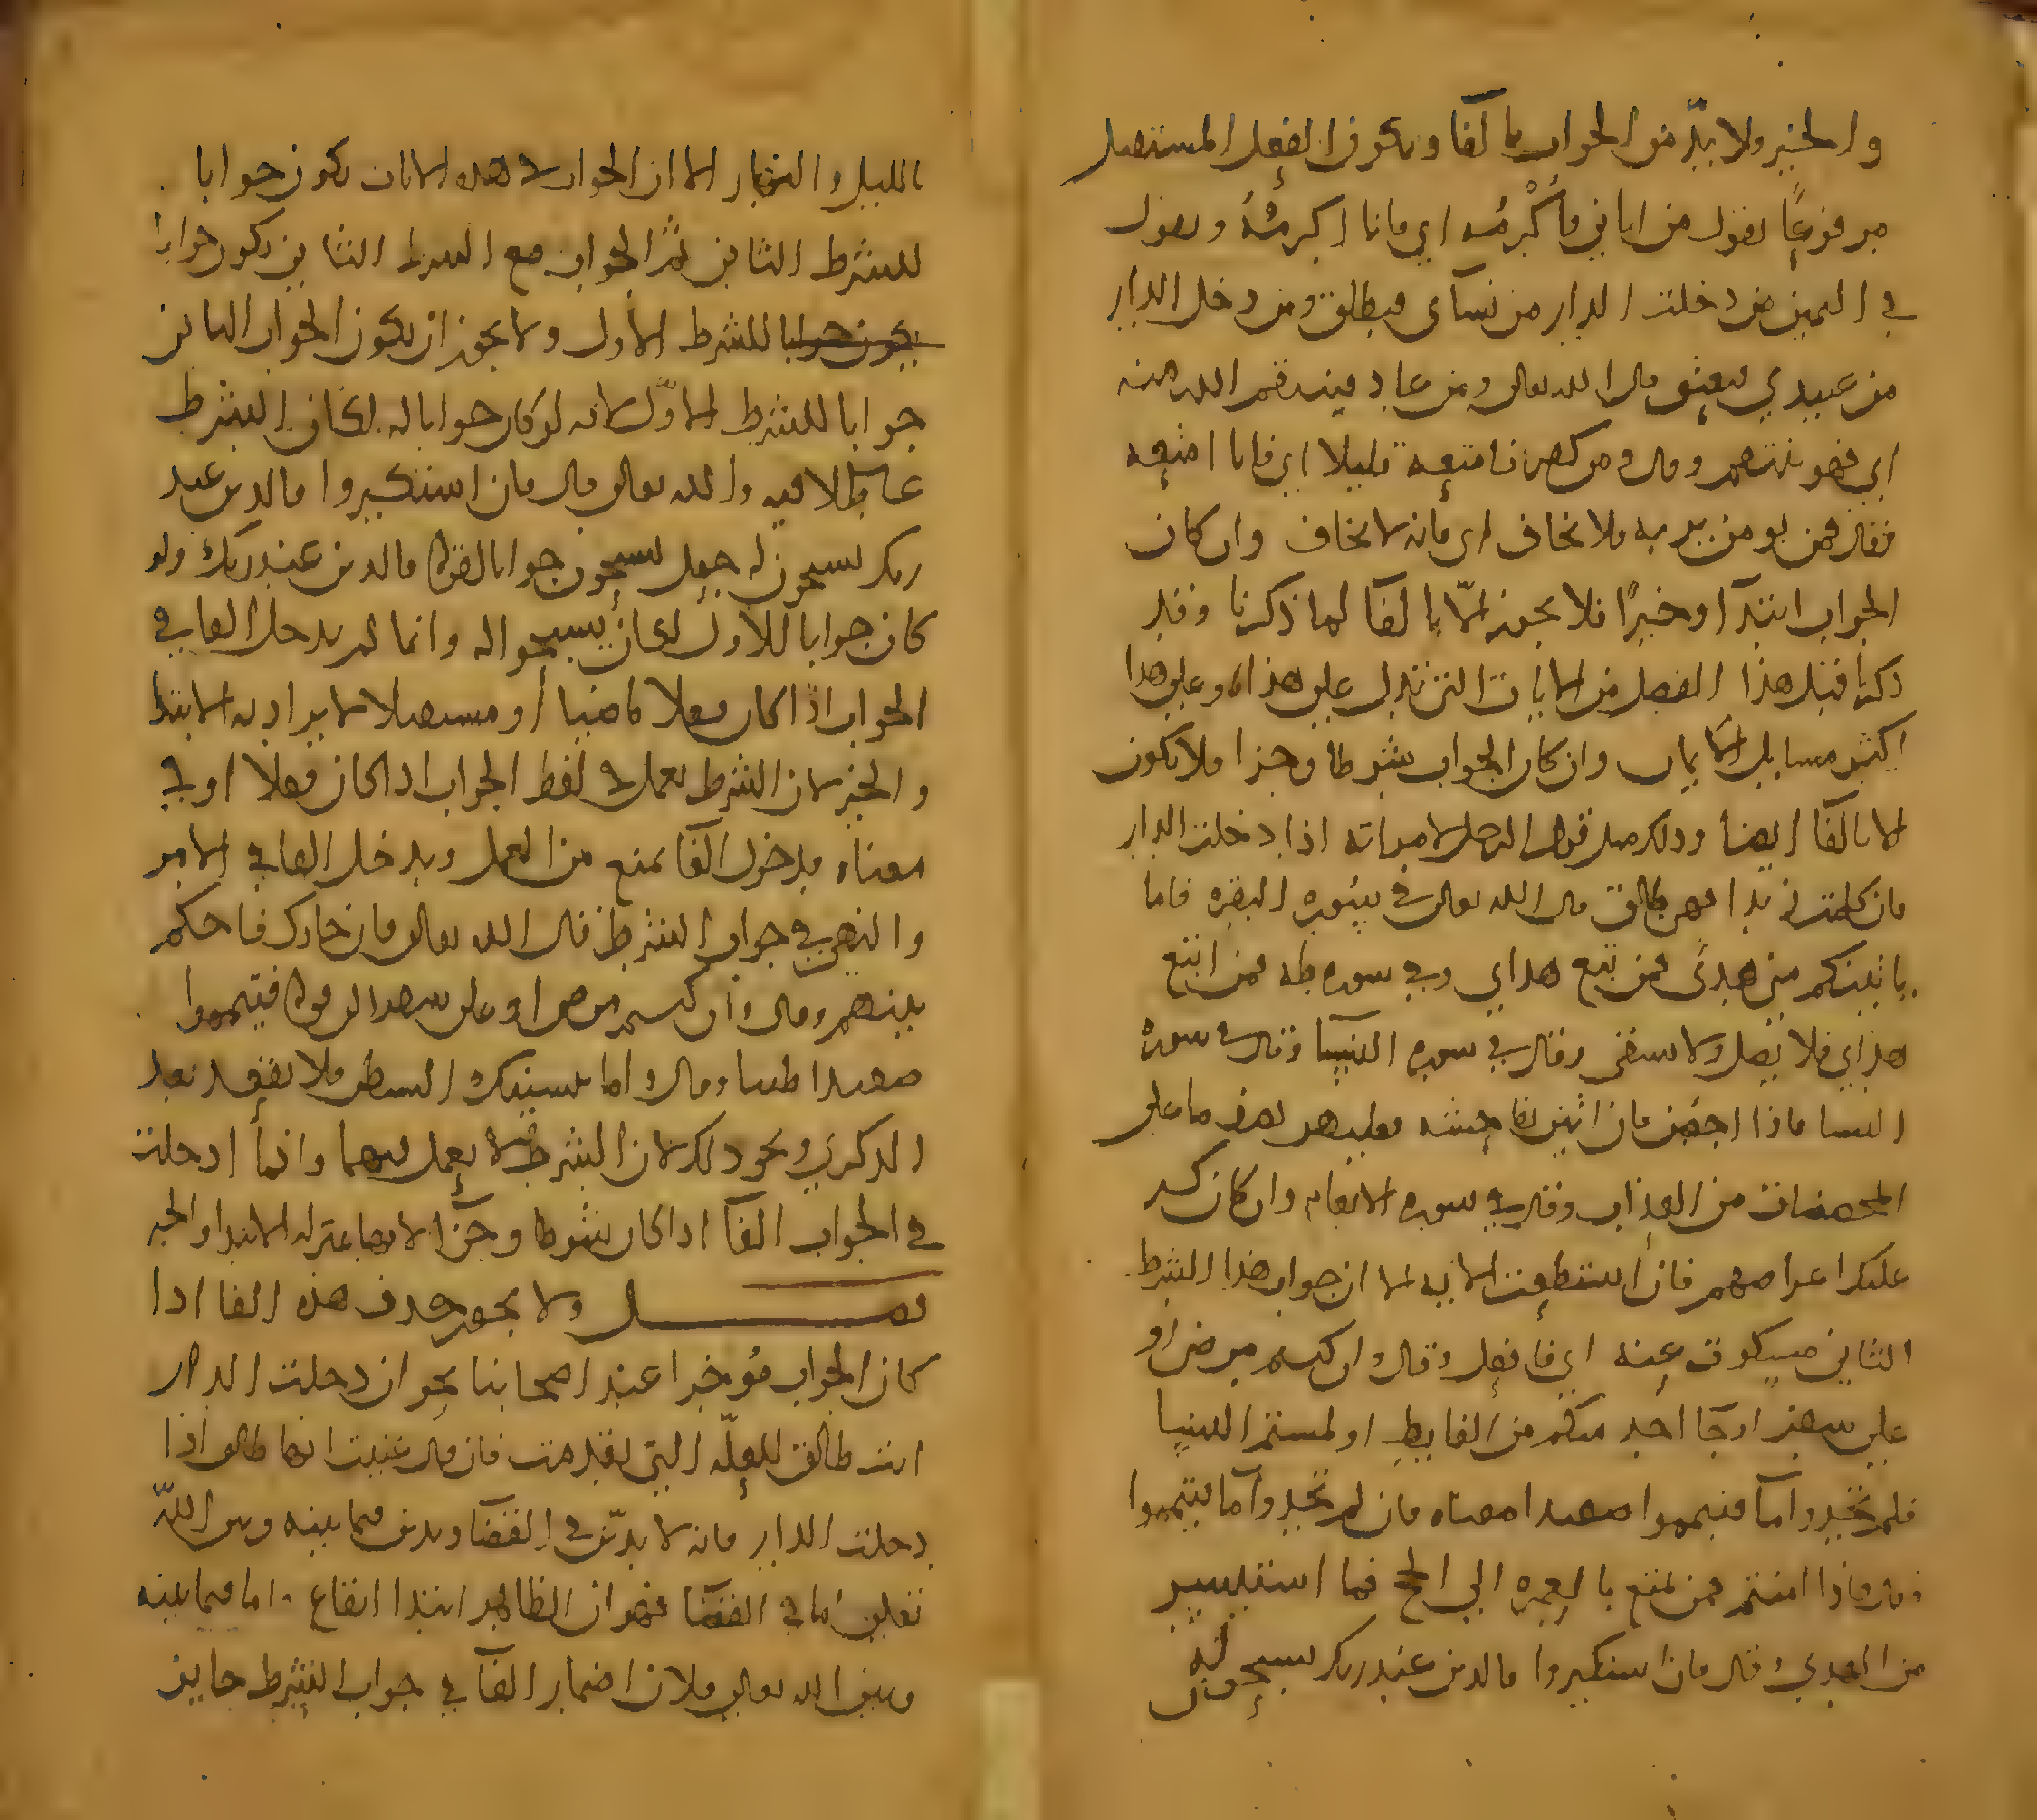 والخبر ولا بدّ من الجواب بالفا ويكون الفعل المستقبل
مرفوعًا يقول من اتاني فأُكْرِمُه اي فانا اكرمُهُ ويقول
في اليمين من دخلت الدار من نسآي فيطلق ومن دخل الدار
من عبيدي فيعتق قال الله تعالى ومن عاد فينتقم الله منه
اي فهو ينتقم وقال ومن كفر فامتعه قليلا اي فانا امتعه
فقال فمن يومن بربه فلا يخاف اي فانه لا يخاف وان كان
الجواب ابتدآ وخبرًا فلا يجوز الّا بالفا لما ذكرنا وقد
ذكرنا قبل هذا الفصل من الايات التي تدل على هذا وعلى هذا
اكثر مسايل الايمان وان كان الجواب شرطا وجزا فلا يكون
الا بالفا ايضا وذلك مثل قول الرجل لامراته اذا دخلت الدار
فان كلمت زيدا فهي طالق قال الله تعالى في سورة البقره فاما
ياتينكم مني هدى فمن تبع هداي وفي سوره طه فمن اتبع
هداي فلا يضل ولا يشقى وقال في سوره النسا وقال في سورة
النسا فاذا احصن فان اتين بفاحشه فعليهن نصف ما على
المحصنات من العذاب وقال في سوره الانعام وان كان كبر
عليك اعراضهم فان استطعت الايه الا ان جواب هذا الشرط
الثاني مسكوت عنه اي فافعل وقال وان كنتم مرضى او
على سفر او جآ احد منكم من الغايط او لمستم النسا
فلم تجدوا مآ فتيمموا صعيدا معناه فان لم تجدوا مآ فتيمموا
وقال فاذا امنتم فمن تمتع بالعمره الى الحج فما استيسر
من الهدي وقال فان استكبروا فالذين عند ربك يسبحون له
بالليل والنهار الا ان الجواب في هذه الايات يكون جوابا
للشرط الثاني ثم الجواب مع الشرط الثاني يكون جوابا
يكون جوابا للشرط الاول ولا يجوز ان يكون الجواب الثاني
جوابا للشرط الاوّل لانه لو كان جوابا له لكان الشرط
عاملا فيه والله تعالى قال فان استكبروا فالذين عند
ربك يسبحون له جعل يسبحون جوابا لقوله فالذين عند ربك ولو
كان جوابا للاول لكان يسبحوا له وانما لم يدخل الفا في
الجواب اذا كان فعلا ماضيا او مستقبلا لا يراد به الابتدا
والخبر لان الشرط يعمل في لفظ الجواب اذا كان فعلا او في
معناه فدخول الفا يمنع من العمل ويدخل الفا في الامر
والنهي في جواب الشرط قال الله تعالى فان جاوك فاحكم
بينهم وقال وان كنتم مرضى او على سفر الى قوله فتيمموا
صعيدا طيبا وقال واما ينسينك الشيطن فلا تقعد بعد
الذكرى ونحو ذلك لان الشرط لا يعمل فيهما وانما ادخلت
في الجواب الفآ اذا كان شرطا وجزآ لانهما بمنزله الابتدا والخبر
فصل ولا يجوز حذف هذه الفا اذا
كان الجواب مُوخرا عند اصحابنا نحو ان دخلت الدار
انت طالق للعلّه التي تقدمت فان قال عنيت انها طالق اذا
دخلت الدار فانه لا يديّن في القضآ ويدين فيما بينه وبين اللهّ
تعالى اما في القضآ فهو ان الظاهر ابتدا ايقاع واما فيما بينه
وبين الله تعالى فلان اضمار الفآ في جواب الشرط جايز